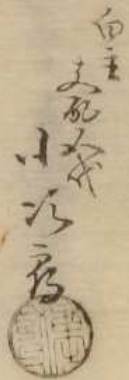 白主
支配人代
小次郎